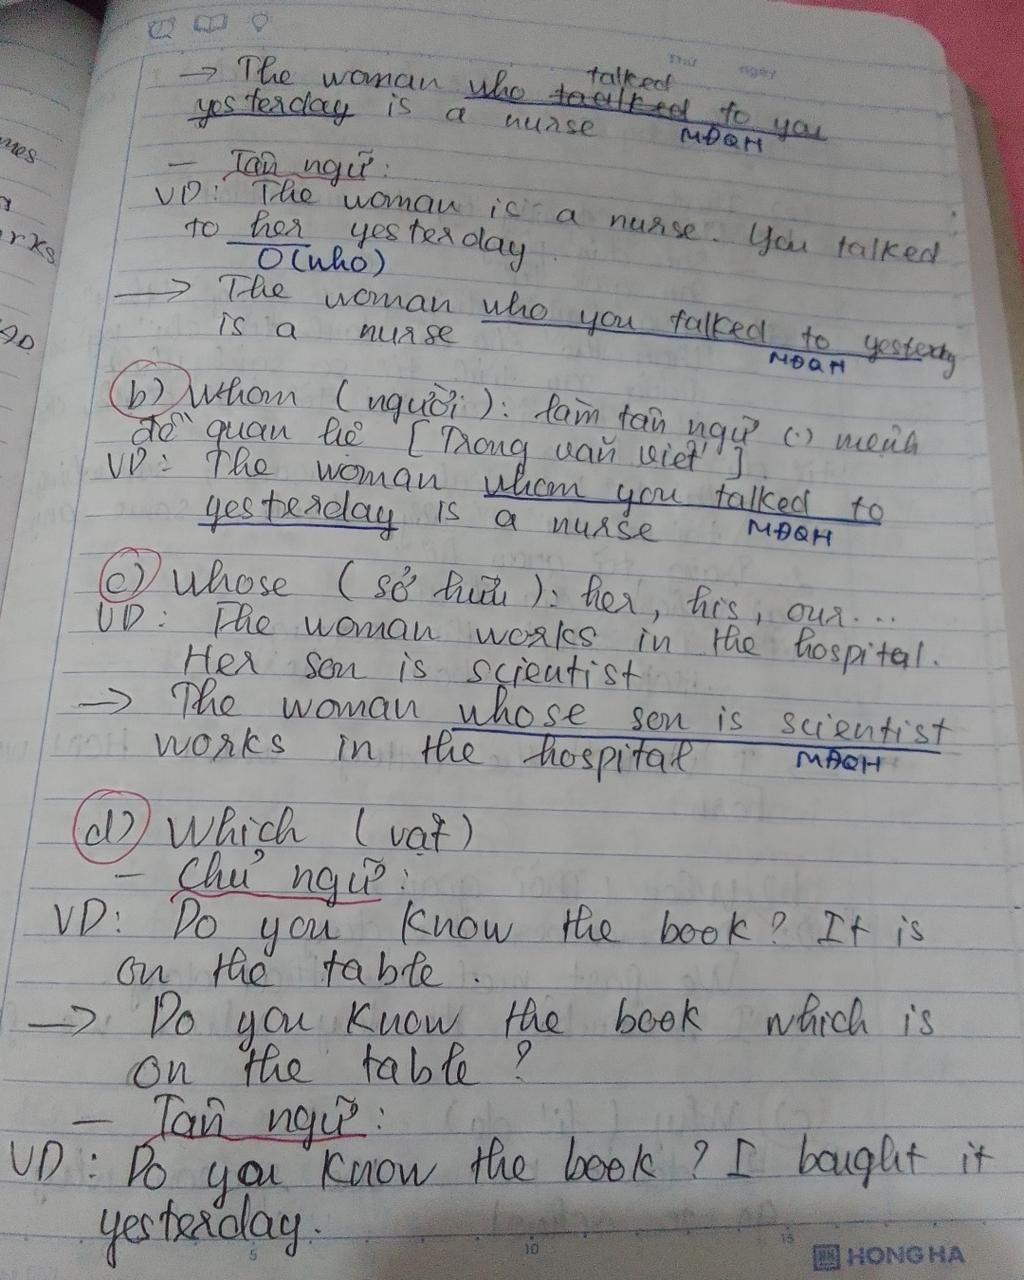 Thứ ngày
→ The woman who talked to you
yesterday is a nurse MĐQH
- Tân ngữ:
VD: The woman is a nurse. You talked
to her yesterday
O(who)
→ The woman who you talked to yesterday
is a nurse MĐQH
b) Whom (người): làm tân ngữ (.) mệnh
đề quan hệ [Trong văn viết]
VD: The woman whom you talked to
yesterday is a nurse MĐQH
c) Whose (sở hữu): her, his, our...
VD: The woman works in the hospital.
Her son is scientist
→ The woman whose son is scientist
works in the hospital MĐQH
d) Which (vật)
- Chủ ngữ:
VD: Do you know the book? It is
on the table.
→ Do you know the book which is
on the table?
- Tân ngữ:
VD: Do you know the book? I bought it
yesterday.
5 10 15
HONG HA